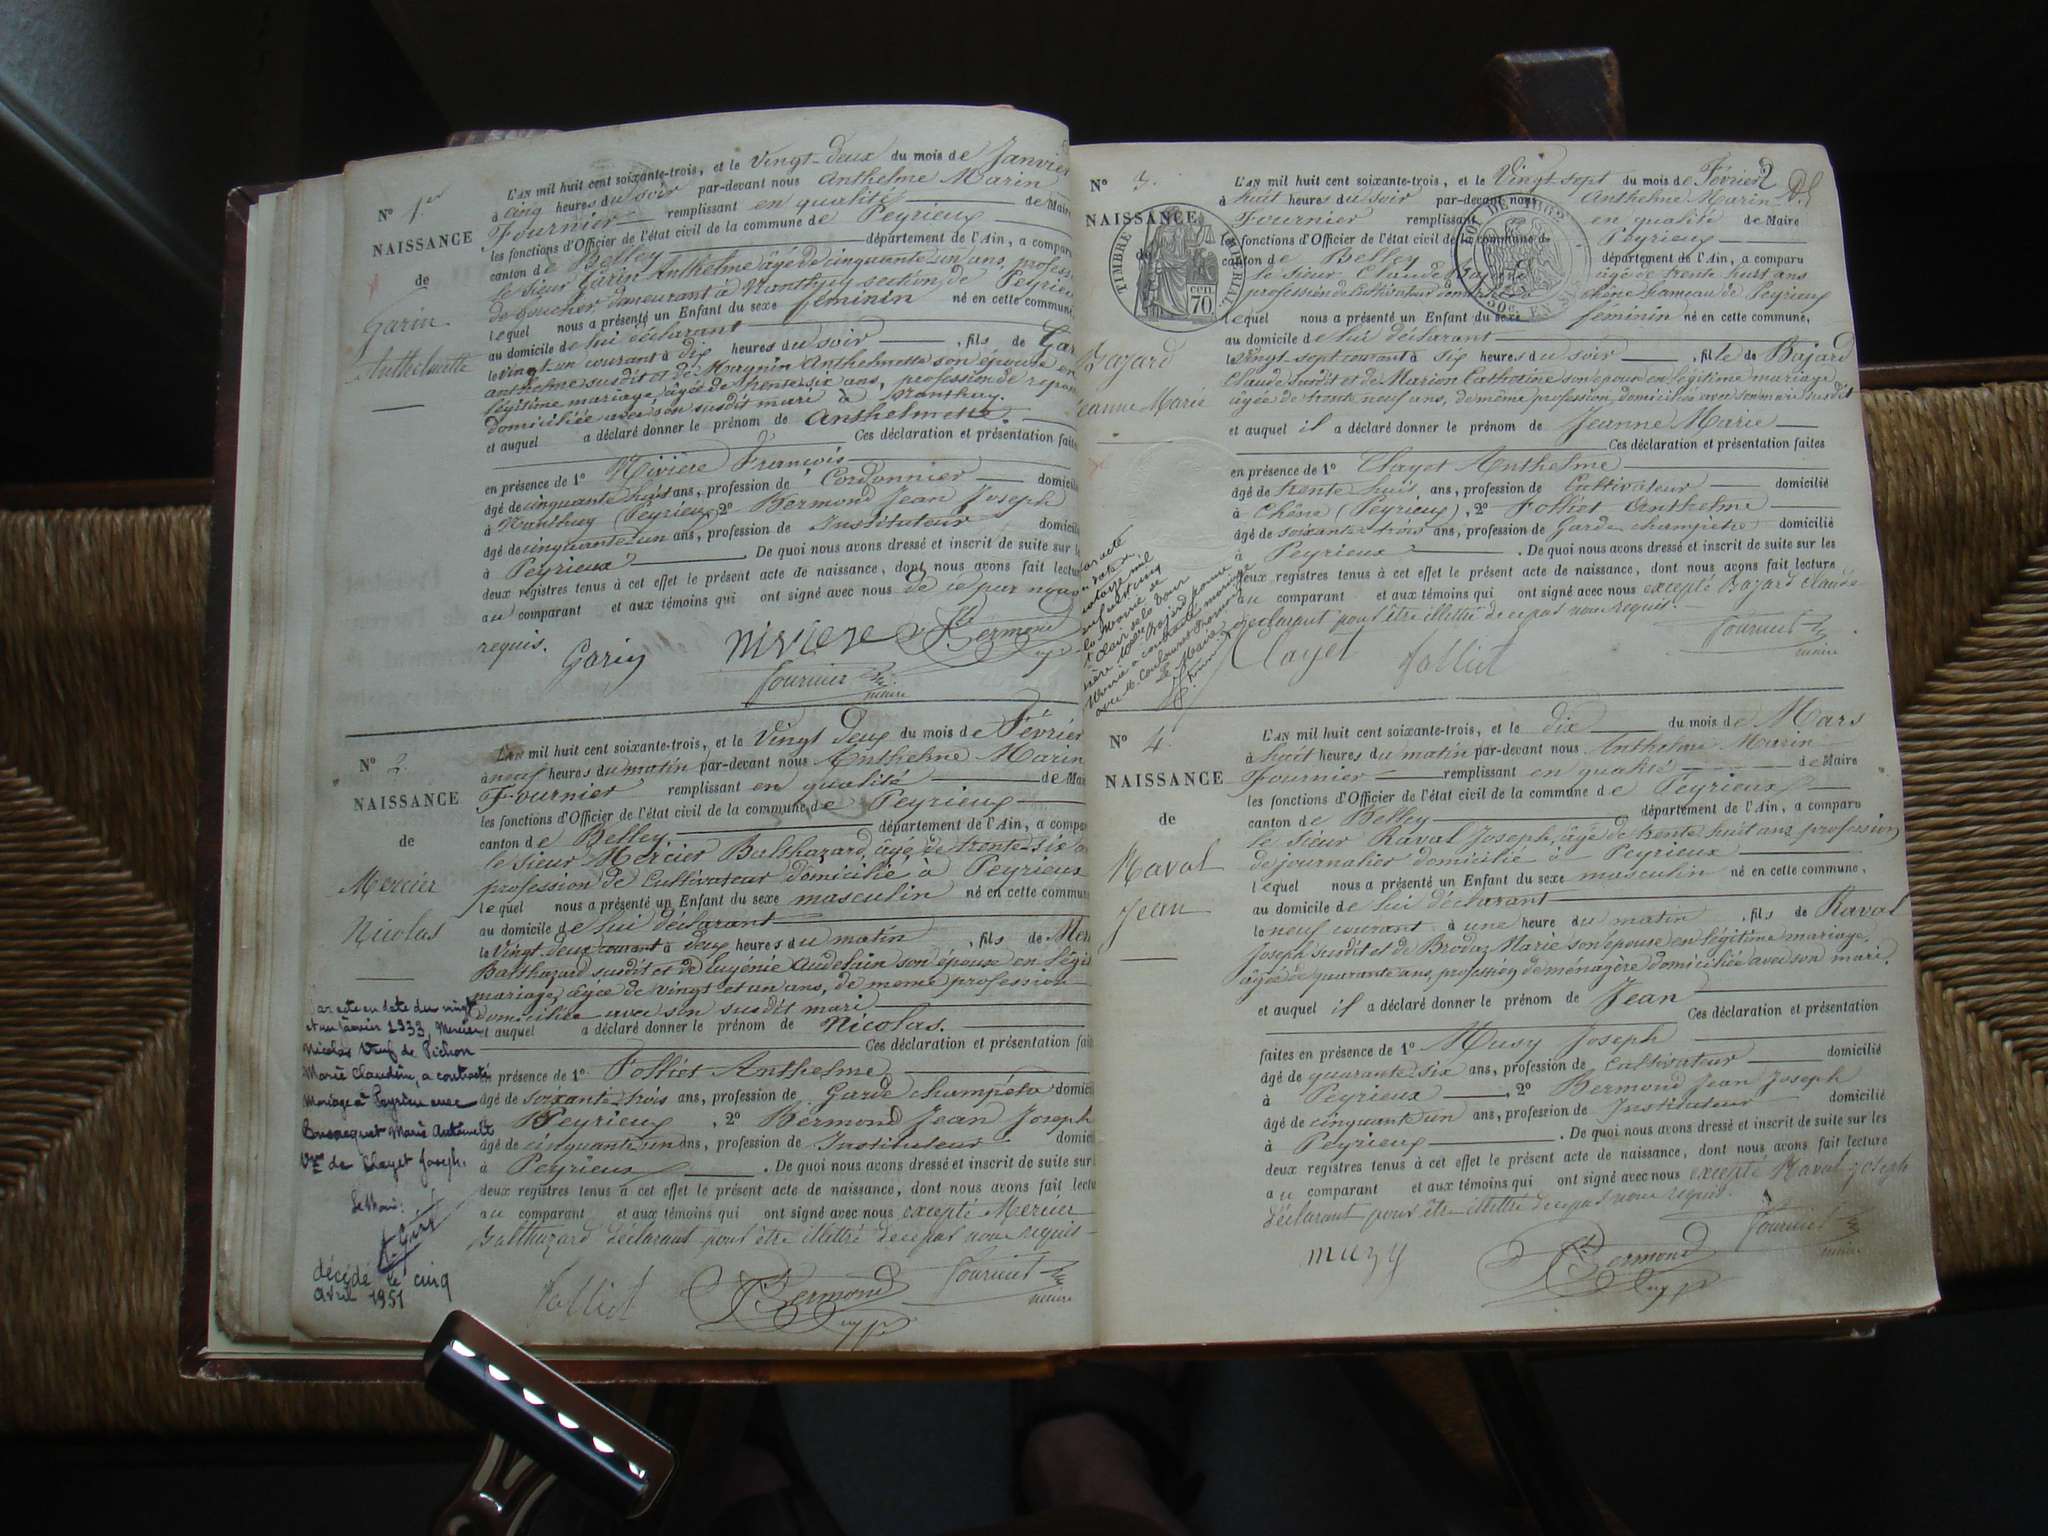 N° 1er
NAISSANCE
de
Garin
Anthelmette
L'AN mil huit cent soixante-trois, et le Vingt-deux du mois de Janvier
à cinq heures du soir par-devant nous Anthelme Marin
Fournier remplissant en qualité de Maire
les fonctions d'Officier de l'état civil de la commune de Peyrieux
canton de Belley département de l'Ain, a comparu
le sieur Garin Anthelme âgé de cinquante-un ans, profess
de demeurant à Nanthuy section de Peyrieu
lequel nous a présenté un Enfant du sexe féminin né en cette commune,
au domicile de lui déclarant
le vingt-un courant à dix heures du soir, fils de Gar
anthelme susdit et de Magnin Anthelmette son épouse en
légitime mariage, âgée de trente-six ans, profession de
domiciliée avec son susdit mari à Nanthuy.
et auquel a déclaré donner le prénom de Anthelmette
Ces déclaration et présentation faites
en présence de 1° Nivière François
âgé de cinquante huit ans, profession de Cordonnier domicilié
à Nanthuy (Peyrieux) 2° Bermond Jean Joseph
âgé de cinquante un ans, profession de Instituteur domicilié
à Peyrieux. De quoi nous avons dressé et inscrit de suite sur le
deux registres tenus à cet effet le présent acte de naissance, dont nous avons fait lectur
au comparant et aux témoins qui ont signé avec nous de ce par nous
requis.
Garin nivière Bermond
fournier maire
N° 2.
NAISSANCE
de
Mercier
Nicolas
L'AN mil huit cent soixante-trois, et le Vingt deux du mois de Février
à neuf heures du matin par-devant nous Anthelme Marin
Fournier remplissant en qualité de Mai
les fonctions d'Officier de l'état civil de la commune de Peyrieux
canton de Belley département de l'Ain, a compar
le sieur Mercier Balthazard, âgé de trente-six a
profession de Cultivateur domicilié à Peyrieux
lequel nous a présenté un Enfant du sexe masculin né en cette commune
au domicile de lui déclarant
le Vingt deux courant à deux heures du matin, fils de Mer
Balthazard susdit et de Eugénie Audelain son épouse en légit
mariage, âgée de vingt et un ans, de même profession
domiciliée avec son susdit mari
et auquel a déclaré donner le prénom de Nicolas.
Ces déclaration et présentation fai
en présence de 1° Folliet Anthelme
âgé de soixante trois ans, profession de Garde champêtre domici
Peyrieux, 2° Bermond Jean Joseph
âgé de cinquante un ans, profession de Instituteur domic
à Peyrieux. De quoi nous avons dressé et inscrit de suite sur
deux registres tenus à cet effet le présent acte de naissance, dont nous avons fait lectu
au comparant et aux témoins qui ont signé avec nous excepté Mercier
Balthazard déclarant pour être illettré de ce par nous requis
folliet Bermond fournier maire
ar acte en date du vingt
et un Janvier 1933, Mercier
Nicolas Veuf de Pichon
Marie Claudine, a contracté
Mariage à Peyrieu avec
Marie
Vve de Clayet Joseph.
Le Maire:
décédé le cinq
avril 1951
N° 3.
NAISSANCE
de
Bazard
Jeanne Marie
TIMBRE IMPÉRIAL
70 cen
2
L'AN mil huit cent soixante-trois, et le Vingt sept du mois de Février
à huit heures du soir par-devant nous Anthelme Marin
Fournier remplissant en qualité de Maire
les fonctions d'Officier de l'état civil de la commune de Peyrieux
canton de Belley département de l'Ain, a comparu
le sieur Claude Bajard âgé de trente huit ans
profession de Cultivateur chêne hameau de Peyrieux
lequel nous a présenté un Enfant du sexe féminin né en cette commune,
au domicile de lui déclarant
le vingt-sept courant à six heures du soir, fille de Bajard
Claude susdit et de Marion Catherine son épouse en légitime mariage
âgée de trente neuf ans, de même profession, domiciliée avec son mari susdit
et auquel il a déclaré donner le prénom de Jeanne Marie
Ces déclaration et présentation faites
en présence de 1° Clayet Anthelme
âgé de trente huit ans, profession de Cultivateur domicilié
à Chêne (Peyrieux), 2° Folliet Anthelme
âgé de soixante trois ans, profession de Garde champêtre domicilié
à Peyrieux. De quoi nous avons dressé et inscrit de suite sur les
deux registres tenus à cet effet le présent acte de naissance, dont nous avons fait lecture
au comparant et aux témoins qui ont signé avec nous excepté Bazard Claude
déclarant pour être illettré de ce par nous requis.
Clayet folliet fournier maire
N° 4.
NAISSANCE
de
Raval
Jean
L'AN mil huit cent soixante-trois, et le dix du mois de Mars
à huit heures du matin par-devant nous Anthelme Marin
Fournier remplissant en qualité de Maire
les fonctions d'Officier de l'état civil de la commune de Peyrieux
canton de Belley département de l'Ain, a comparu
le sieur Raval Joseph, âgé de trente huit ans, profession
de journalier domicilié à Peyrieux
lequel nous a présenté un Enfant du sexe masculin né en cette commune,
au domicile de lui déclarant
le neuf courant à une heure du matin, fils de Raval
Joseph susdit et de Brodaz Marie son épouse en légitime mariage,
âgée de quarante ans, profession de ménagère domiciliée avec son mari.
et auquel il a déclaré donner le prénom de Jean
Ces déclaration et présentation
faites en présence de 1° Musy Joseph
âgé de quarante six ans, profession de cultivateur domicilié
à Peyrieux, 2° Bermond Jean Joseph
âgé de cinquante un ans, profession de Instituteur domicilié
à Peyrieux. De quoi nous avons dressé et inscrit de suite sur les
deux registres tenus à cet effet le présent acte de naissance, dont nous avons fait lecture
au comparant et aux témoins qui ont signé avec nous excepté Raval Joseph
déclarant pour être illettré de ce par nous requis.
muzy Bermond fournier maire